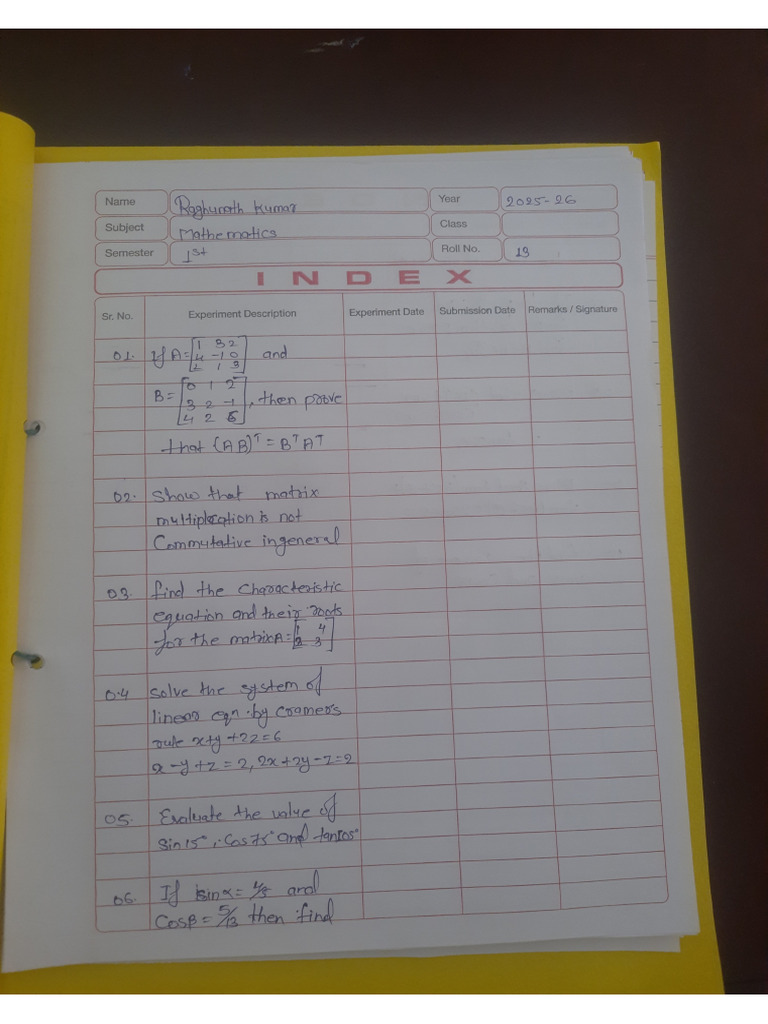 Name Raghunath Kumar Year 2025-26
Subject Mathematics Class
Semester 1st Roll No. 13
INDEX
Sr. No. Experiment Description Experiment Date Submission Date Remarks / Signature
01. If A=[1 3 2 and
4 -1 0
1 3]
B=[0 1 2
3 2 -1], then prove
4 2
that (AB)ᵀ = BᵀAᵀ
02. Show that matrix
multiplication is not
Commutative in general
03. find the characteristic
equation and their roots
for the matrix A=[1 4
2 3]
04 Solve the system of
linear eqn. by Cramer's
rule x+y+2z=6
x-y+z=2, 2x+2y-z=2
05. Evaluate the value of
Sin15°, Cos75° and tan105°
06. If sinα= and
Cosβ=5/13 then find